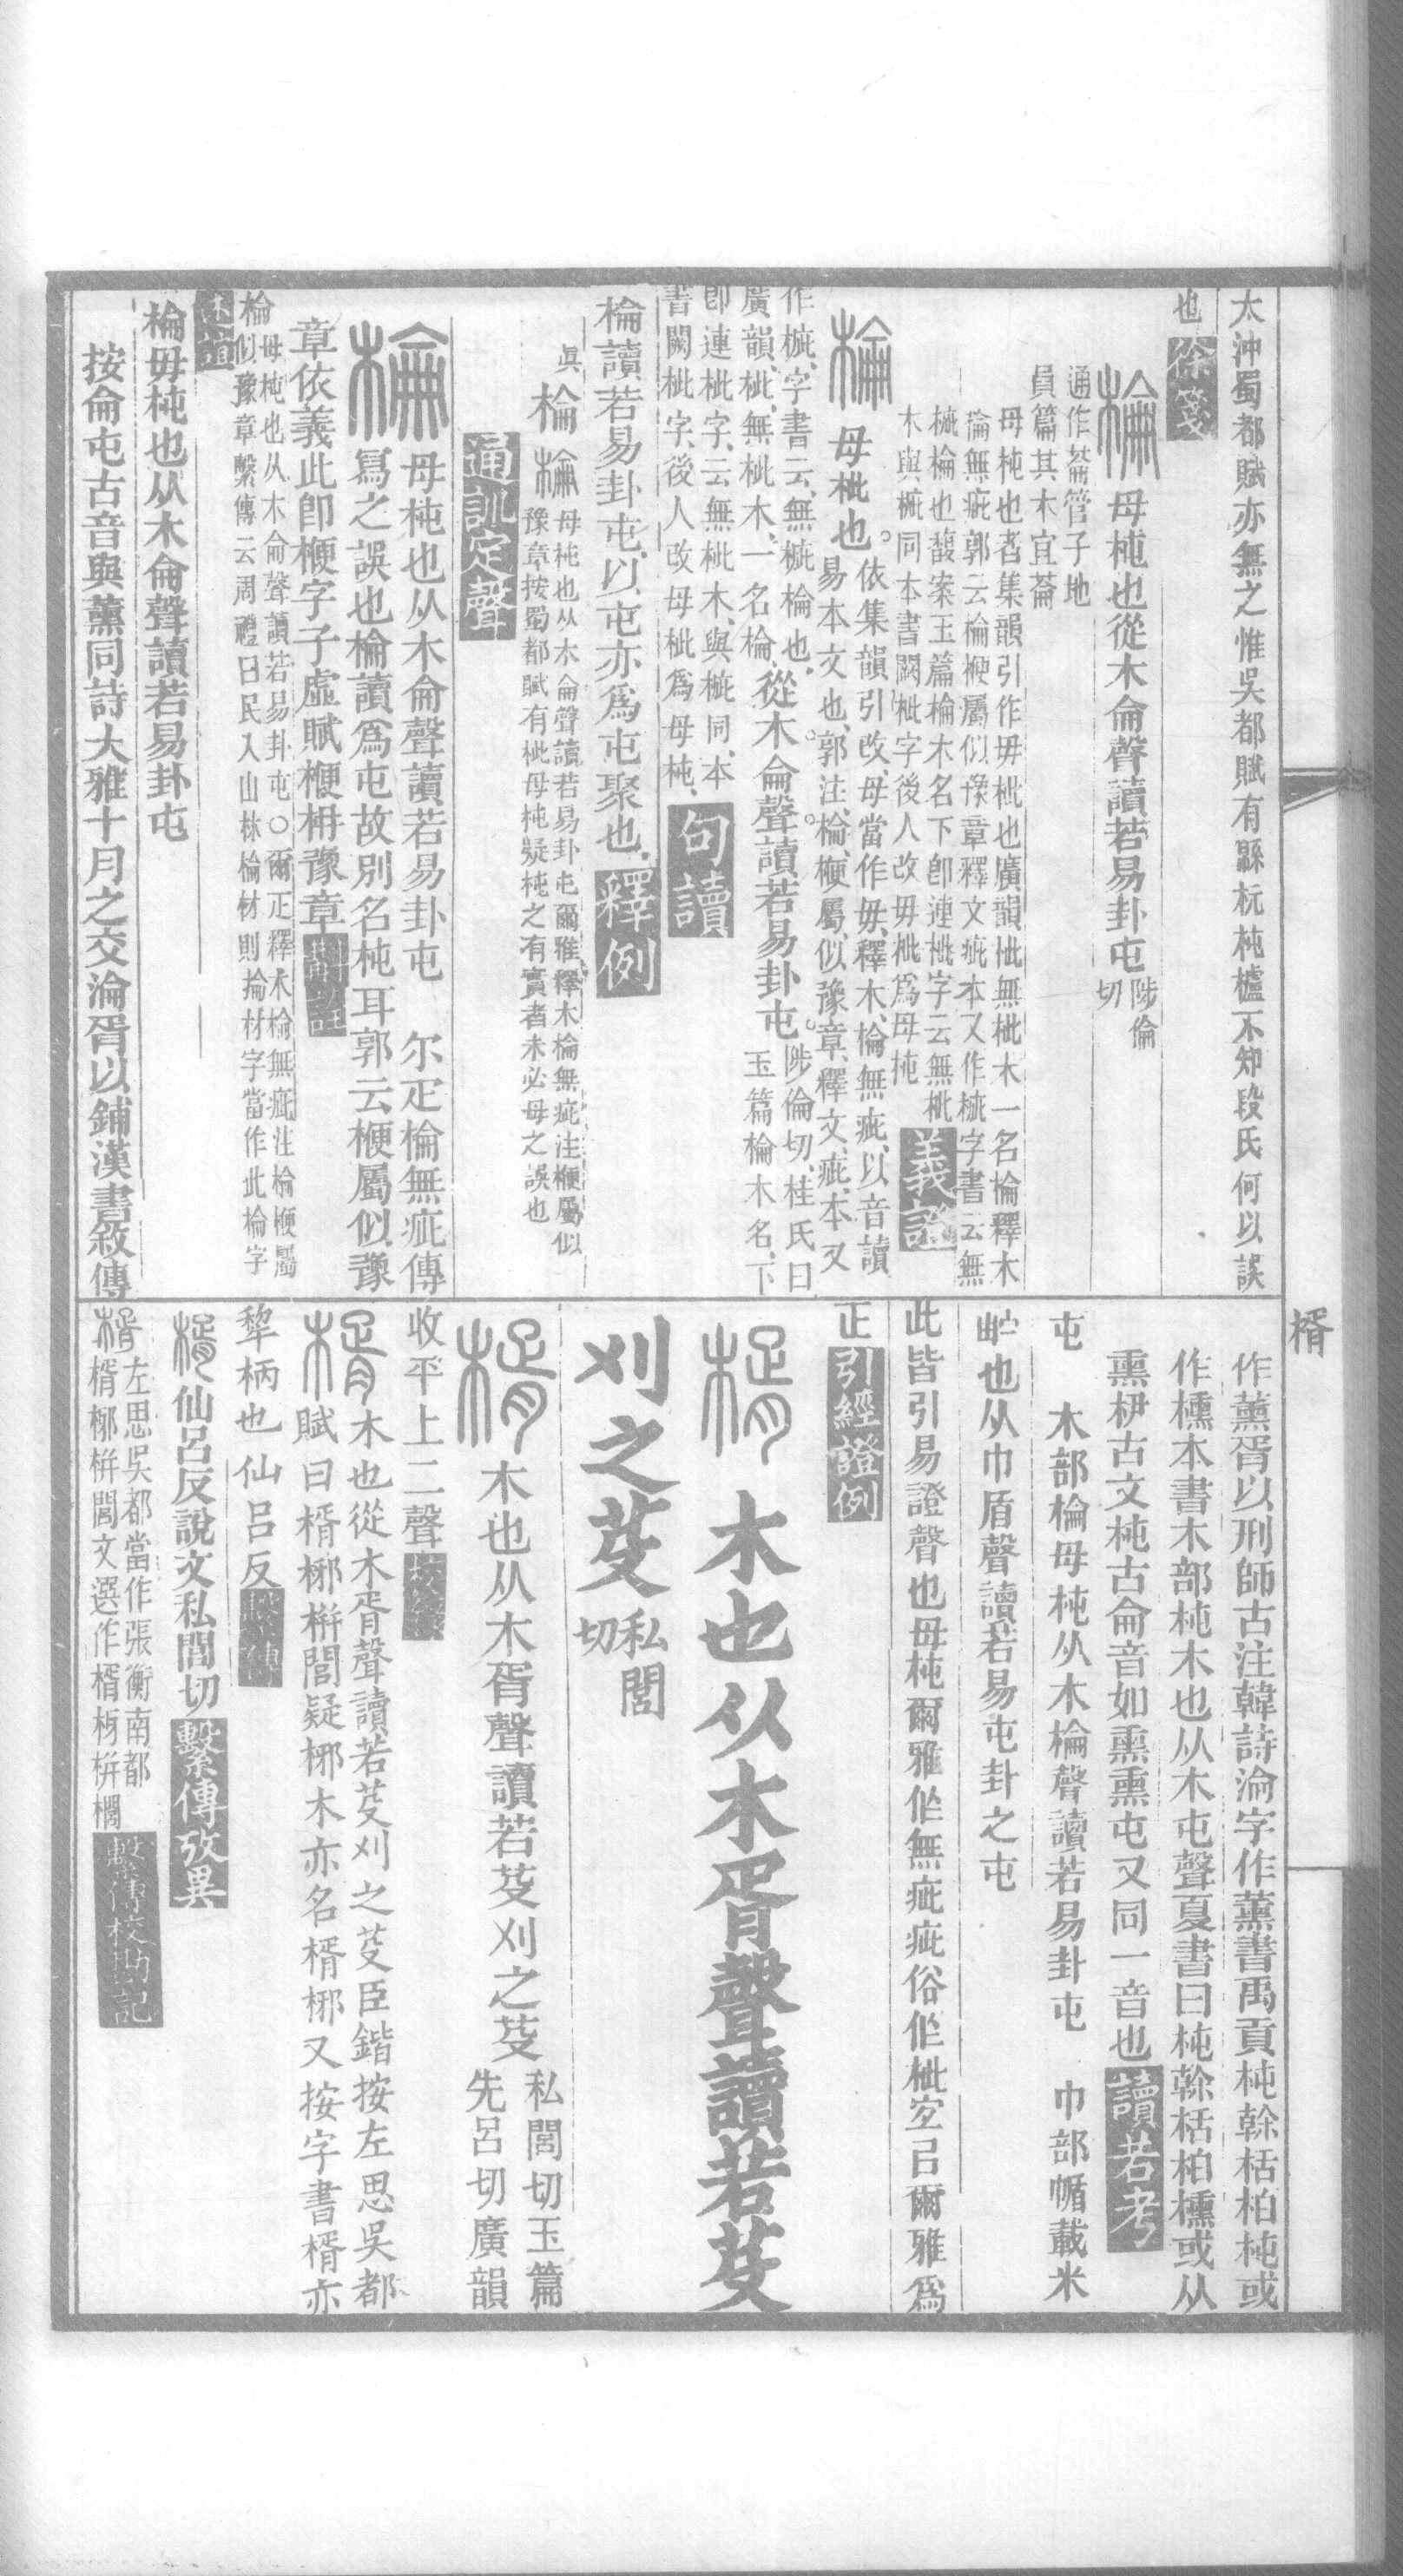 太沖蜀都賦亦無之惟吳都賦有緜杬杶櫨不知段氏何以誤
也徐箋
棆母杶也從木侖聲讀若易卦屯陟倫
切
通作菕管子地
員篇其木宜菕
母杶也者集韻引作毋枇也廣韻枇無枇木一名棆釋木
棆無疵郭云棆楩屬似豫章釋文疵本又作㭰字書云無
㭰棆也馥案玉篇棆木名下卽連枇字云無枇
木與㭰同本書闕枇字後人改毋枇爲母杶義證
棆母枇也依集韻引改母當作毋釋木棆無疵以音讀
易本文也郭注棆楩屬似豫章釋文疵本又
作㭰字書云無㭰棆也
廣韻枇無枇木一名棆從木侖聲讀若易卦屯陟倫切桂氏曰
玉篇棆木名下
卽連枇字云無枇木與㭰同本
書闕枇字後人改毋枇爲母杶句讀
棆讀若易卦屯以屯亦爲屯聚也釋例
眞棆棆母杶也从木侖聲讀若易卦屯爾雅釋木棆無疵注楩屬似
豫章按蜀都賦有枇母杶疑杶之有實者未必毋之誤也
通訓定聲
棆母杶也从木侖聲讀若易卦屯 尔疋棆無疵傳
寫之誤也棆讀爲屯故別名杶耳郭云楩屬似豫
章依義此卽楩字子虛賦楩枏豫章斠詮
棆母杶也从木侖聲讀若易卦屯○爾正釋木棆無疵注棆楩屬
似豫章繫傳云周禮曰民入山林棆材則掄材字當作此棆字
述誼
棆毋杶也从木侖聲讀若易卦屯
按侖屯古音與薰同詩大雅十月之交淪胥以鋪漢書敘傳
楈
作薰胥以刑師古注韓詩淪字作薰書禹貢杶榦栝柏杶或
作櫄本書木部杶木也从木屯聲夏書曰杶榦栝柏櫄或从
熏杻古文杶古侖音如熏熏屯又同一音也讀若考
屯 木部棆母杶从木棆聲讀若易卦屯 巾部㡒載米
㡒也从巾盾聲讀若易屯卦之屯
此皆引易證聲也毋杶爾雅作無疵疵俗作枇定㠯爾雅爲
正引經證例
楈木也从木胥聲讀若芟
刈之芟私閭
切
楈木也从木胥聲讀若芟刈之芟私閭切玉篇
先呂切廣韻
收平上二聲校錄
楈木也從木胥聲讀若芟刈之芟臣鍇按左思吳都
賦曰楈枒栟閭疑枒木亦名楈枒又按字書楈亦
犂柄也仙呂反繫傳
楈仙呂反說文私閭切繫傳攷異
楈左思吳都當作張衡南都
楈枒栟閭文選作楈枒栟櫚繫傳校勘記